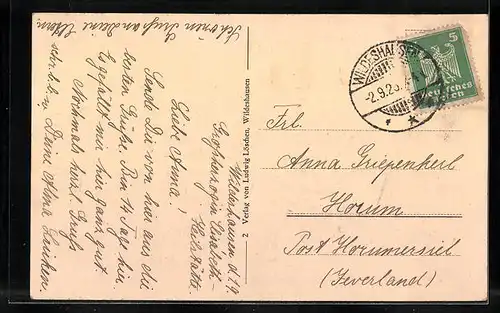 Schönen Gruß an Deine Eltern
Wildeshausen d. 1/9.
Großherzogin Elisabeth-
Heilstätte
Liebe Anna!
Sende Dir von hier aus die
besten Grüße. Bin 14 Tage hier.
Es gefällt mir hier ganz gut.
Nochmals herzl. Gruß
Deine Alma
2 Verlag von Ludwig Löschen, Wildeshausen
WILDESHAUSEN
-2.9.25.
5
Deutsches
Reich
Frl.
Anna Griepenkerl
Horum
Post Horumersiel
(Jeverland)